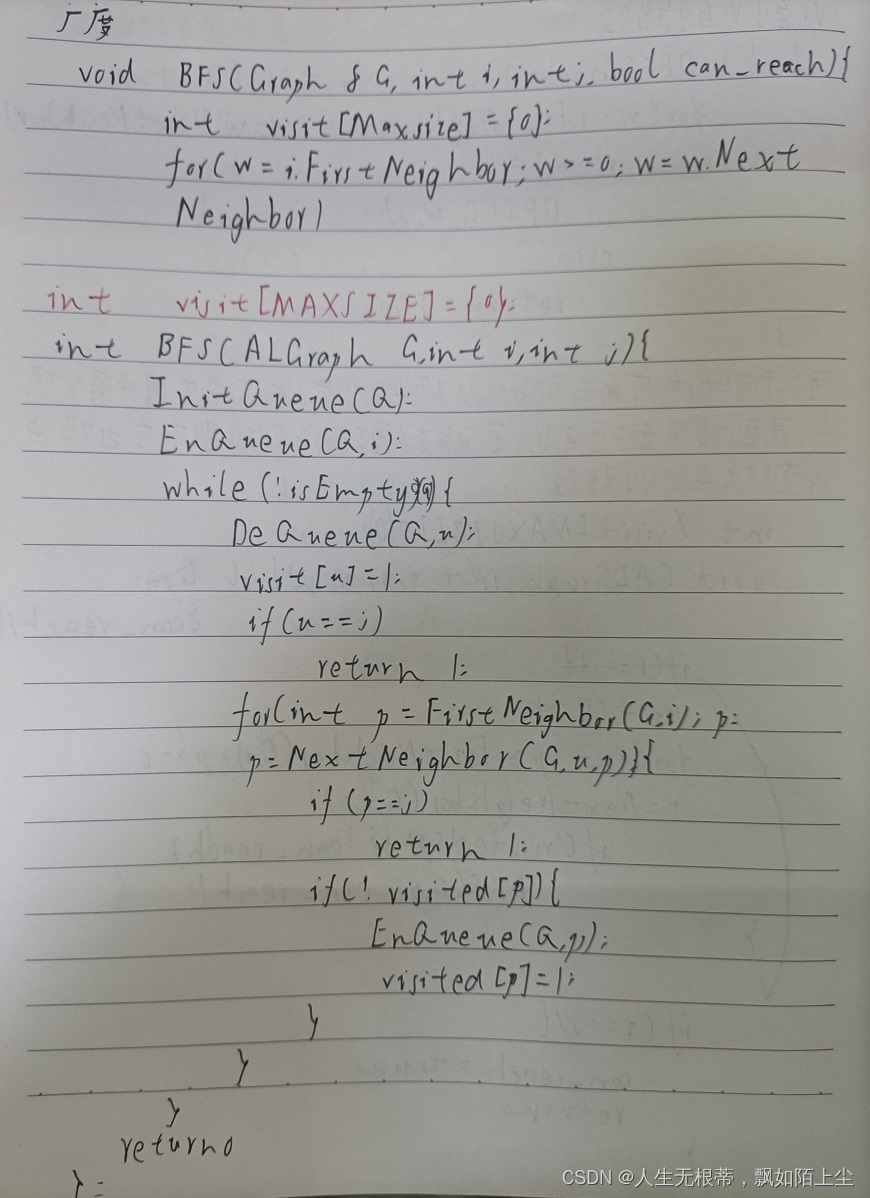 广度
void BFS(Graph & G, int i, int j, bool can_reach){
int visit[Maxsize]={0};
for(w=i.FirstNeighbor;w>=0;w=w.Next
Neighbor)
int visit[MAXSIZE]={0};
int BFS(ALGraph G,int i,int j){
InitQueue(Q);
EnQueue(Q,i);
while(!isEmpty(Q)){
DeQueue(Q,u);
visit[u]=1;
if(u==j)
return 1;
for(int p=FirstNeighbor(G,i);p;
p=NextNeighbor(G,u,p)){
if(p==j)
return 1;
if(!visited[p]){
EnQueue(Q,p);
visited[p]=1;
}
}
}
return 0
};
CSDN @人生无根蒂，飘如陌上尘